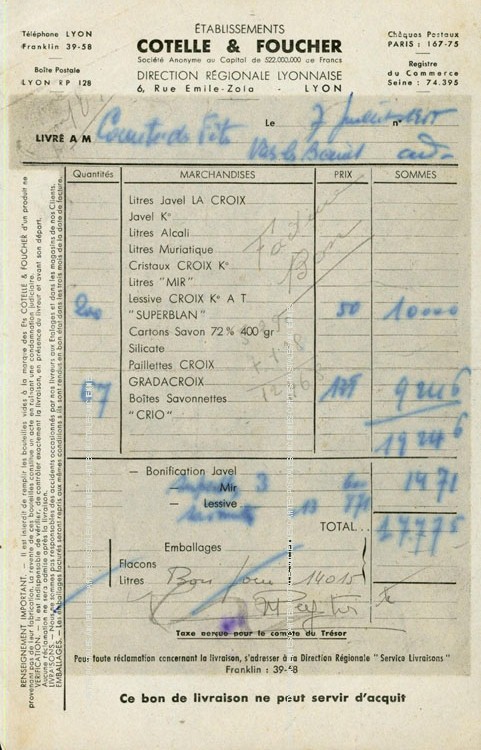 Téléphone LYON
Franklin 39-58
Boîte Postale
LYON RP 128
ÉTABLISSEMENTS
COTELLE & FOUCHER
Société Anonyme au Capital de 522.000.000 de Francs
DIRECTION RÉGIONALE LYONNAISE
6, Rue Emile-Zola - LYON
Chèques Postaux
PARIS : 167-75
Registre
du Commerce
Seine : 74.395
Le 7 Juillet 1955 n°
LIVRÉ A M Comité des Fêtes
Quantités MARCHANDISES PRIX SOMMES
Litres Javel LA CROIX
Javel K°
Litres Alcali
Litres Muriatique
Cristaux CROIX K°
Litres "MIR"
Lessive CROIX K° A T
200 "SUPERBLAN" 50 10000
Cartons Savon 72% 400 gr
Silicate
Paillettes CROIX
67 GRADACROIX 9246
Boîtes Savonnettes
"CRIO" 19246
Facture
Bon
— Bonification Javel
— Mir 3 600 1471
— Lessive 13 871
TOTAL... 17.775
Emballages
Flacons
Litres Bon pour 14015
Taxe perçue pour le compte du Trésor
Pour toute réclamation concernant la livraison, s'adresser à la Direction Régionale "Service Livraisons"
Franklin : 39-58
Ce bon de livraison ne peut servir d'acquit
RENSEIGNEMENT IMPORTANT. — Il est interdit de remplir les bouteilles vides à la marque des Ets COTELLE & FOUCHER d'un produit ne
provenant pas de leur fabrication. La revente de ces bouteilles constitue un acte entraînant une condamnation judiciaire.
VERIFICATION. — Il est indispensable de vérifier, de contrôler exactement la livraison, en présence du livreur et avant son départ.
Aucune réclamation ne sera admise après la livraison.
LIVRAISONS. — Nous ne sommes pas responsables des accidents occasionnés par nos livreurs aux Etalages et dans les magasins de nos Clients.
EMBALLAGES. — Les emballages facturés seront repris aux mêmes conditions s'ils sont rendus en bon état dans les trois mois de la date de facture.